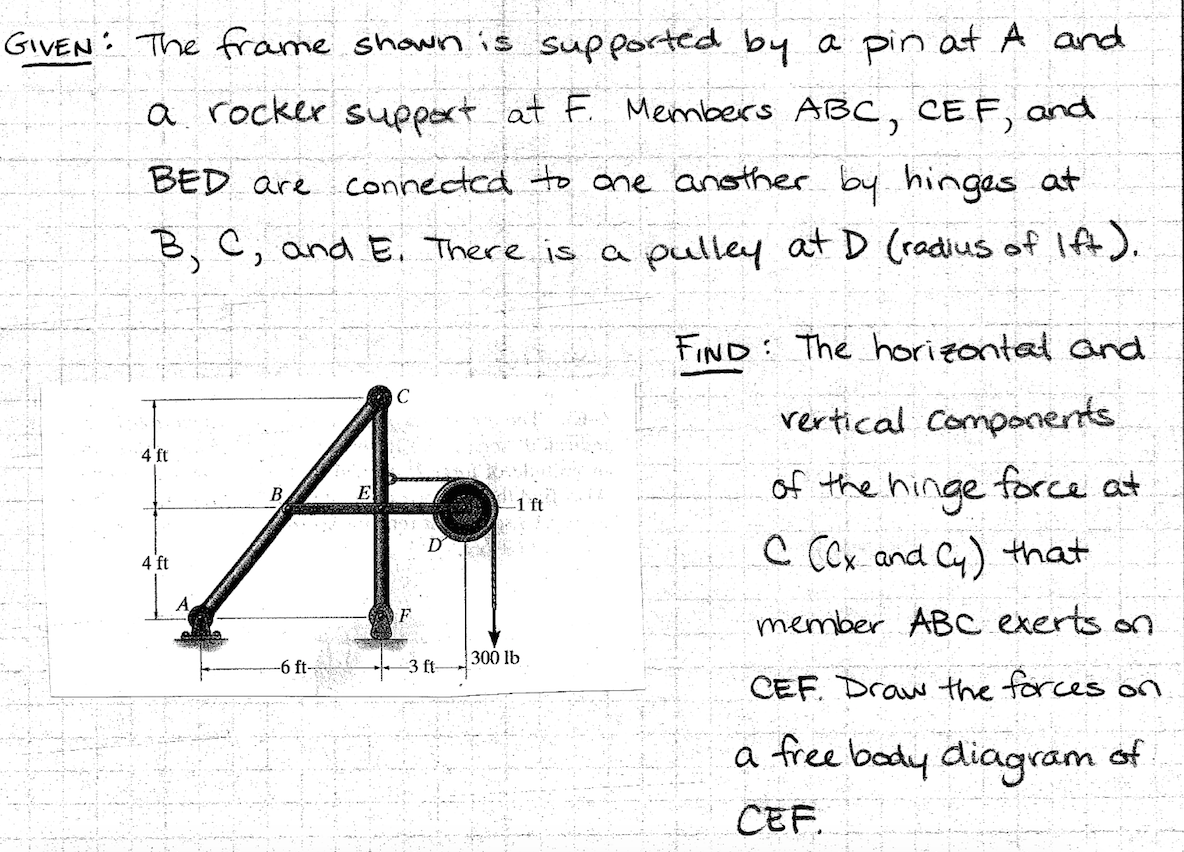 GIVEN: The frame shown is supported by a pin at A and
a rocker support at F. Members ABC, CEF, and
BED are connected to one another by hinges at
B, C, and E. There is a pulley at D (radius of 1ft).
FIND: The horizontal and
vertical components
of the hinge force at
C (Cx and Cy) that
member ABC exerts on
CEF. Draw the forces on
a free body diagram of
CEF.
C
4 ft
B
E
1 ft
D
4 ft
A
F
300 lb
6 ft
3 ft